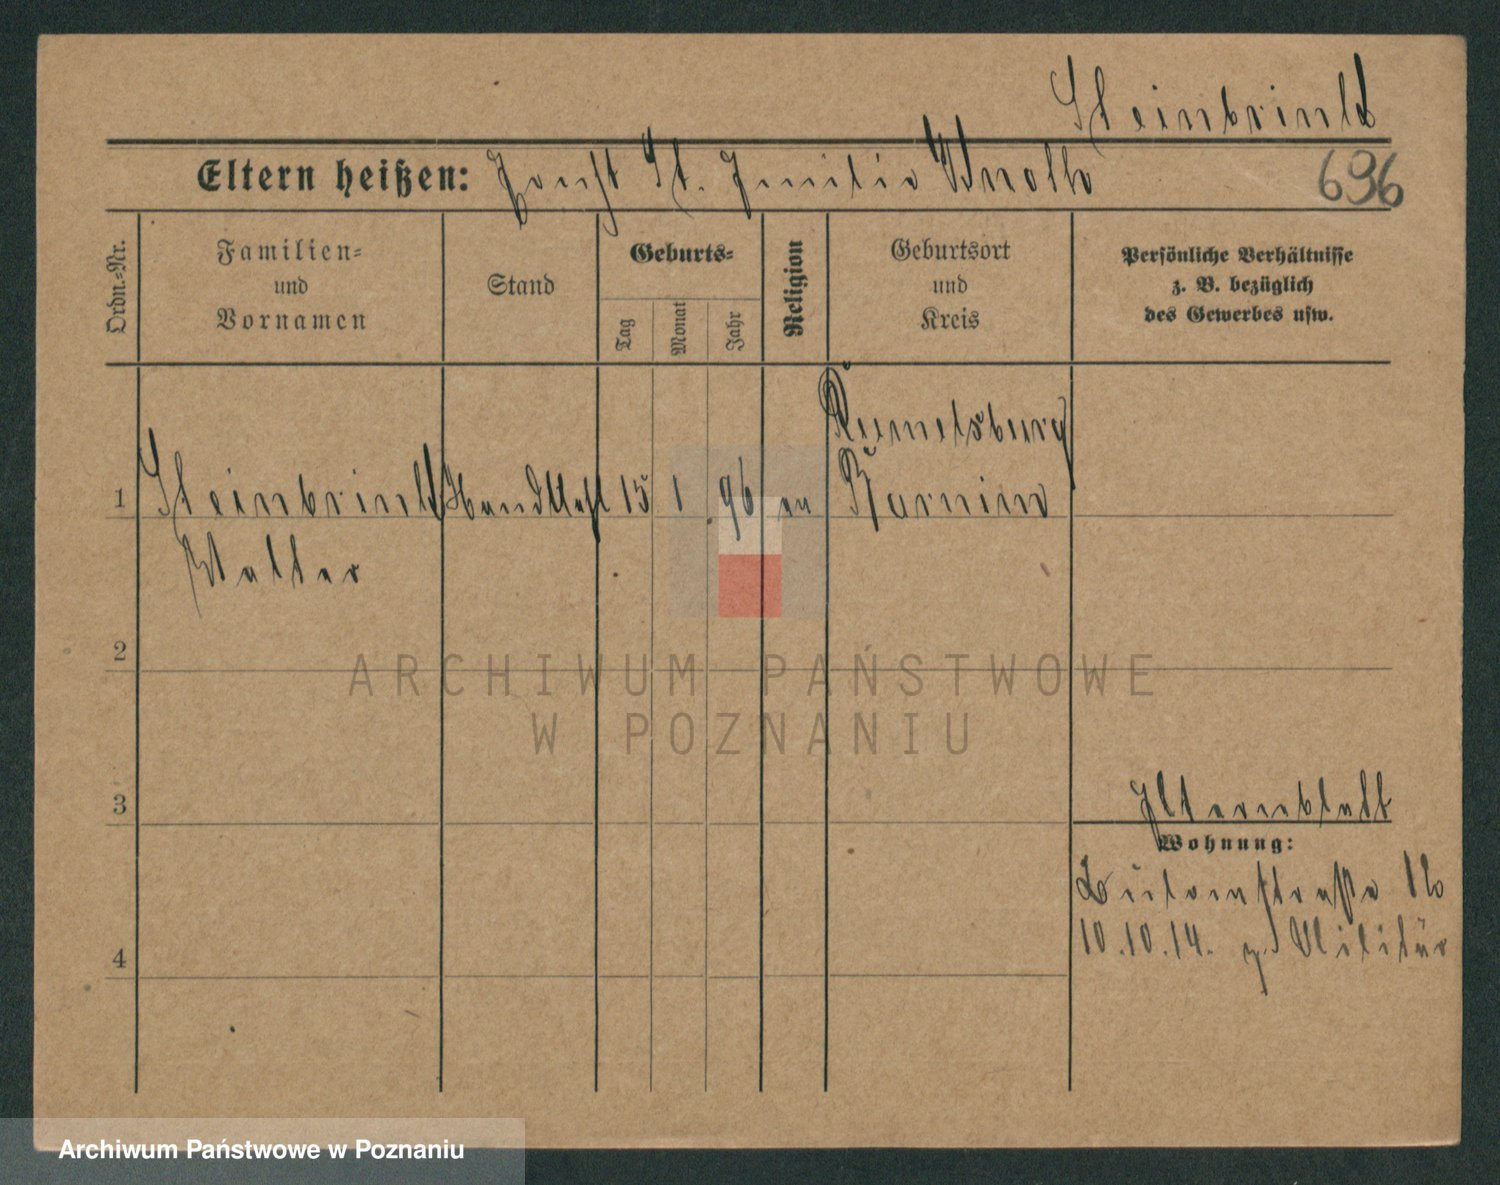 Steinbrink
Eltern heißen: August St. Emilie Knoll
696
Ordn.-Nr.
Familien-
und
Vornamen
Stand
Geburts-
Tag
Monat
Jahr
Religion
Geburtsort
und
Kreis
Persönliche Verhältnisse
z. B. bezüglich
des Gewerbes usw.
Rumelsburg
1 Steinbrink 15 1 96 ev Barnim
Walter
2
ARCHIWUM PAŃSTWOWE
W POZNANIU
3
Elternblatt
Wohnung:
10.10.14. z. Militär
4
Archiwum Państwowe w Poznaniu